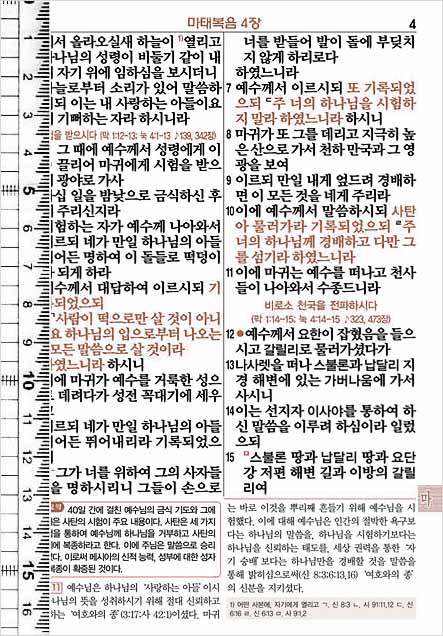 마태복음 4장
4
서 올라오실새 하늘이 ㄱ)열리고
나님의 성령이 비둘기 같이 내
자기 위에 임하심을 보시더니
늘로부터 소리가 있어 말씀하
되 이는 내 사랑하는 아들이요
기뻐하는 자라 하시니라
을 받으시다 (막 1:12-13; 눅 4:1-13 ♪139, 342장)
그 때에 예수께서 성령에게 이
끌리어 마귀에게 시험을 받으
광야로 가사
십 일을 밤낮으로 금식하신 후
주리신지라
험하는 자가 예수께 나아와서
르되 네가 만일 하나님의 아들
어든 명하여 이 돌들로 떡덩이
되게 하라
수께서 대답하여 이르시되 기
되었으되
사람이 떡으로만 살 것이 아니
요 하나님의 입으로부터 나오는
모든 말씀으로 살 것이라
였느니라 하시니
에 마귀가 예수를 거룩한 성으
데려다가 성전 꼭대기에 세우
르되 네가 만일 하나님의 아들
어든 뛰어내리라 기록되었으
그가 너를 위하여 그의 사자들
을 명하시리니 그들이 손으로
너를 받들어 발이 돌에 부딪치
지 않게 하리로다
하였느니라
7 예수께서 이르시되 또 기록되었
으되 주 너의 하나님을 시험하
지 말라 하였느니라 하시니
8 마귀가 또 그를 데리고 지극히 높
은 산으로 가서 천하 만국과 그 영
광을 보여
9 이르되 만일 내게 엎드려 경배하
면 이 모든 것을 네게 주리라
10 이에 예수께서 말씀하시되 사탄
아 물러가라 기록되었으되 주
너의 하나님께 경배하고 다만 그
를 섬기라 하였느니라
11 이에 마귀는 예수를 떠나고 천사
들이 나아와서 수종드니라
비로소 천국을 전파하시다
(막 1:14-15; 눅 4:14-15 ♪323, 473장)
12 예수께서 요한이 잡혔음을 들으
시고 갈릴리로 물러가셨다가
13 나사렛을 떠나 스불론과 납달리 지
경 해변에 있는 가버나움에 가서
사시니
14 이는 선지자 이사야를 통하여 하
신 말씀을 이루려 하심이라 일렀
으되
15 스불론 땅과 납달리 땅과 요단
강 저편 해변 길과 이방의 갈릴
리여
40일 간에 걸친 예수님의 금식 기도와 그에
은 사탄의 시험이 주요 내용이다. 사탄은 세 가지
을 통하여 예수님께 하나님을 거부하고 사탄의
에 복종하라고 한다. 이에 주님은 말씀으로 승리
다. 이로써 메시아의 신적 능력, 성부에 대한 성자
복종이 확증된 것이다.
11 예수님은 하나님의 '사랑하는 아들'이시
나님의 뜻을 성취하시기 위해 절대 신뢰하고
하는 '여호와의 종'(3:17;사 42:1)이셨다. 마귀
는 바로 이것을 뿌리째 흔들기 위해 예수님을 시
험했다. 이에 대해 예수님은 인간의 절박한 욕구보
다는 하나님의 말씀을, 하나님을 시험하기보다는
하나님을 신뢰하는 태도를, 세상 권력을 통한 '자
기 숭배'보다는 하나님만을 경배할 것을 말씀을
통해 밝히심으로써(신 8:3;6:13,16) '여호와의 종'
의 신분을 지키셨다.
1) 어떤 사본에, 자기에게 열리고 ㄱ. 신 8:3 ㄴ. 시 91:11,12 ㄷ. 신
6:16 ㄹ. 신 6:13 ㅁ. 사 9:1,2
마
0
5
10
15